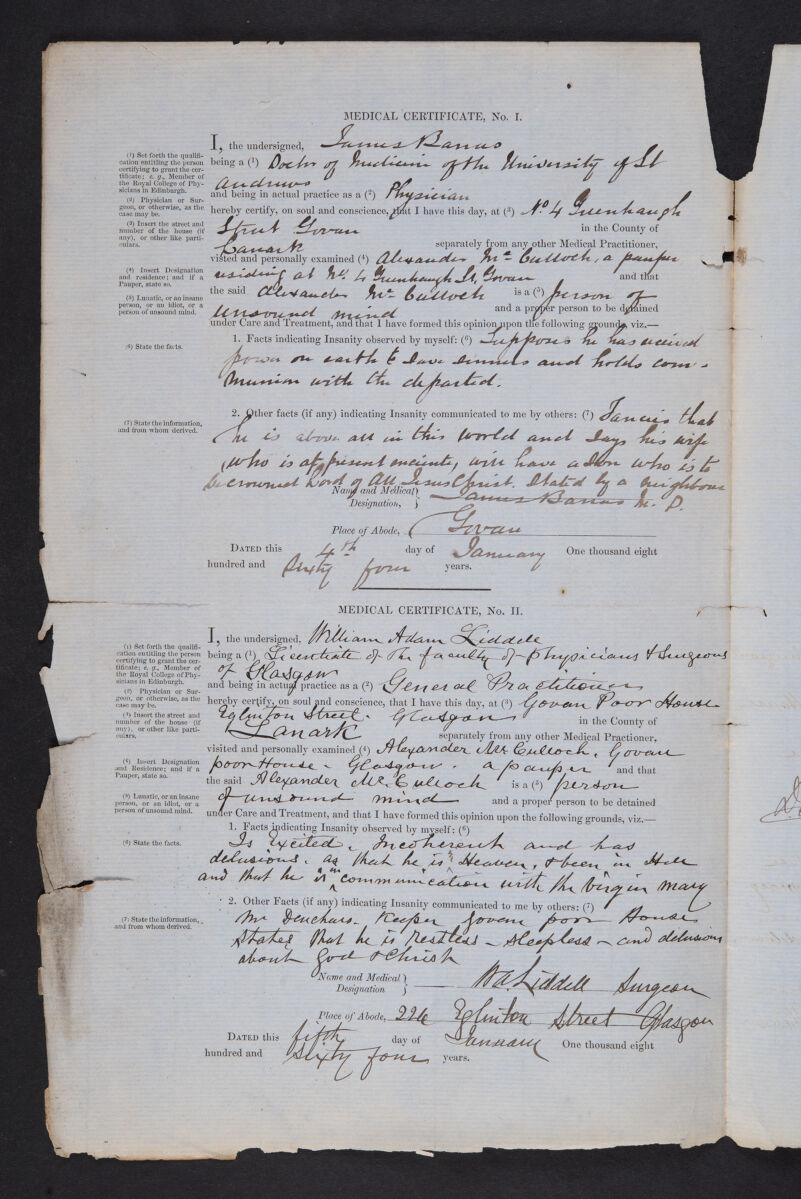 MEDICAL CERTIFICATE, No. I.
I, the undersigned, James Barras
(1) Set forth the qualification entitling the person certifying to grant the certificate; e. g., Member of the Royal College of Physicians in Edinburgh.
being a (1) Doctor of Medicine of the University of St
Andrews
(2) Physician or Surgeon, or otherwise, as the case may be.
and being in actual practice as a (2) Physician
(3) Insert the street and number of the house (if any), or other like particulars.
hereby certify, on soul and conscience, that I have this day, at (3) No. 4 Greenhaugh
Street Govan in the County of
Lanark separately from any other Medical Practitioner,
(4) Insert Designation and residence; and if a Pauper, state so.
visted and personally examined (4) Alexander McCulloch, a pauper
residing at No. 4 Greenhaugh St, Govan and that
(5) Lunatic, or an insane person, or an idiot, or a person of unsound mind.
the said Alexander McCulloch is a (5) person of
unsound mind and a proper person to be detained
under Care and Treatment, and that I have formed this opinion upon the following grounds, viz.—
(6) State the facts.
1. Facts indicating Insanity observed by myself: (6) Supposes he has received
power on earth to save sinners and holds com-
munion with the departed.
(7) State the information, and from whom derived.
2. Other facts (if any) indicating Insanity communicated to me by others: (7) Fancies that
he is above all in this world and says his wife
who is at present enceinte, will have a son who is to
be crowned Lord of All Jesus Christ. Stated by a neighbour
Name and Medical Designation, } James Barras M. D.
Place of Abode, Govan
DATED this 4th day of January One thousand eight
hundred and Sixty four years.
MEDICAL CERTIFICATE, No. II.
I, the undersigned, William Adam Liddell
(1) Set forth the qualification entitling the person certifying to grant the certificate; e. g., Member of the Royal College of Physicians in Edinburgh.
being a (1) Licentiate of the faculty of physicians & Surgeons
of Glasgow
(2) Physician or Surgeon, or otherwise, as the case may be.
and being in actual practice as a (2) General Practitioner
(3) Insert the street and number of the house (if any), or other like particulars.
hereby certify, on soul and conscience, that I have this day, at (3) Govan Poor House
Eglinton Street. Glasgow in the County of
Lanark separately from any other Medical Practitioner,
(4) Insert Designation and Residence; and if a Pauper, state so.
visited and personally examined (4) Alexander McCulloch, Govan
poor House - Glasgow. a pauper and that
(5) Lunatic, or an insane person, or an idiot, or a person of unsound mind.
the said Alexander McCulloch is a (5) person
of unsound mind. and a proper person to be detained
under Care and Treatment, and that I have formed this opinion upon the following grounds, viz.—
(6) State the facts.
1. Facts indicating Insanity observed by myself: (6)
Is Excited, Incoherent and has
delusions. as that he is in Heaven, & been in Hell
and that he is in communication with the Virgin Mary
(7) State the information, and from whom derived.
2. Other Facts (if any) indicating Insanity communicated to me by others: (7)
Mr Keeper Govan poor House
States that he is restless - sleepless - and delusions
about God & Christ
Name and Medical Designation } W A Liddell Surgeon
Place of Abode, 226 Eglinton Street Glasgow
DATED this fifth day of January One thousand eight
hundred and Sixty four years.